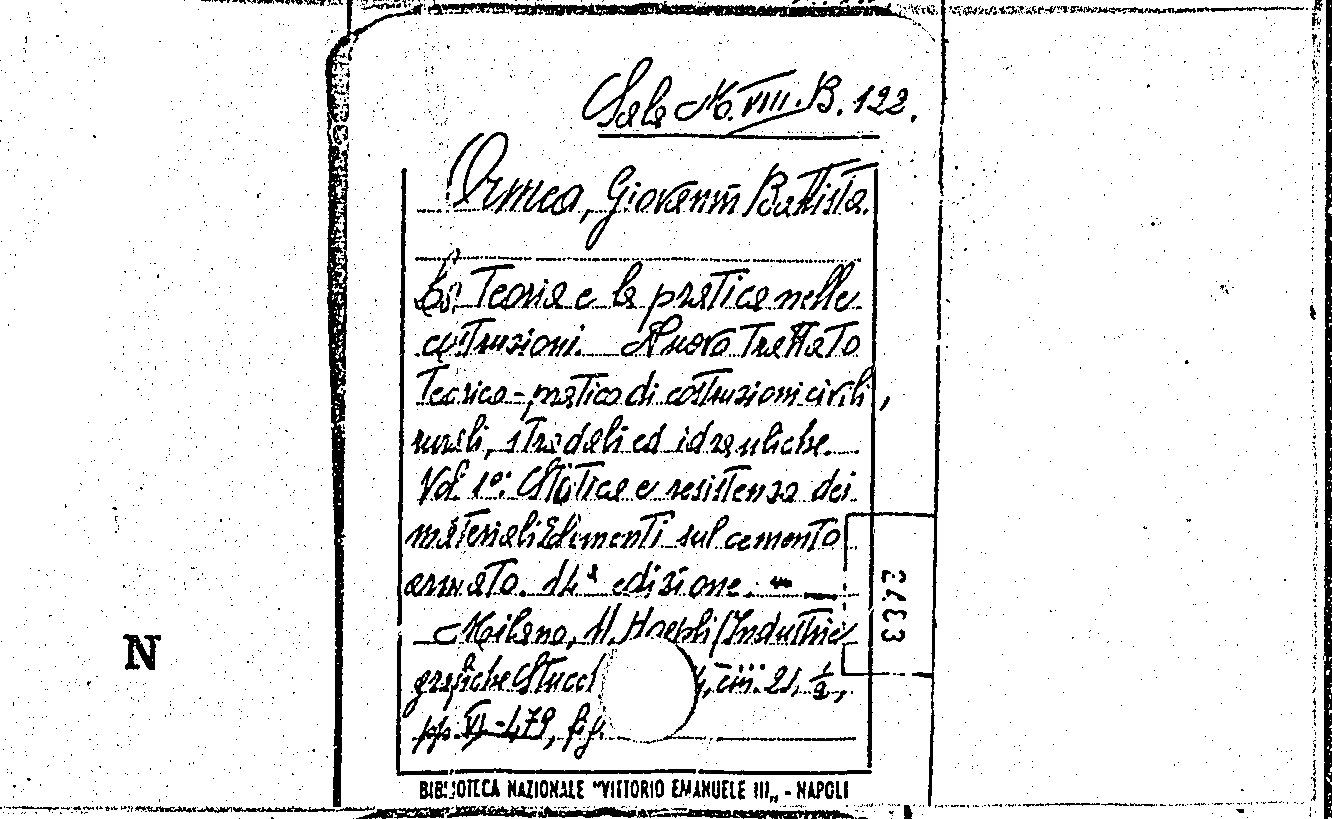 Sala M. VIII. B. 122.
Ormea, Giovanni Battista.
La Teoria e la pratica nelle
costruzioni. Nuovo Trattato
Teorico-pratico di costruzioni civili,
rurali, stradali ed idrauliche.
Vol. 1º: Statica e resistenza dei
materiali Elementi sul cemento
armato. 14ª edizione.
Milano, U. Hoepli (Industrie
grafiche Stucchi cm. 21 ½,
pp. VI-479, fig.
2733
N
BIBLIOTECA NAZIONALE "VITTORIO EMANUELE III„ - NAPOLI